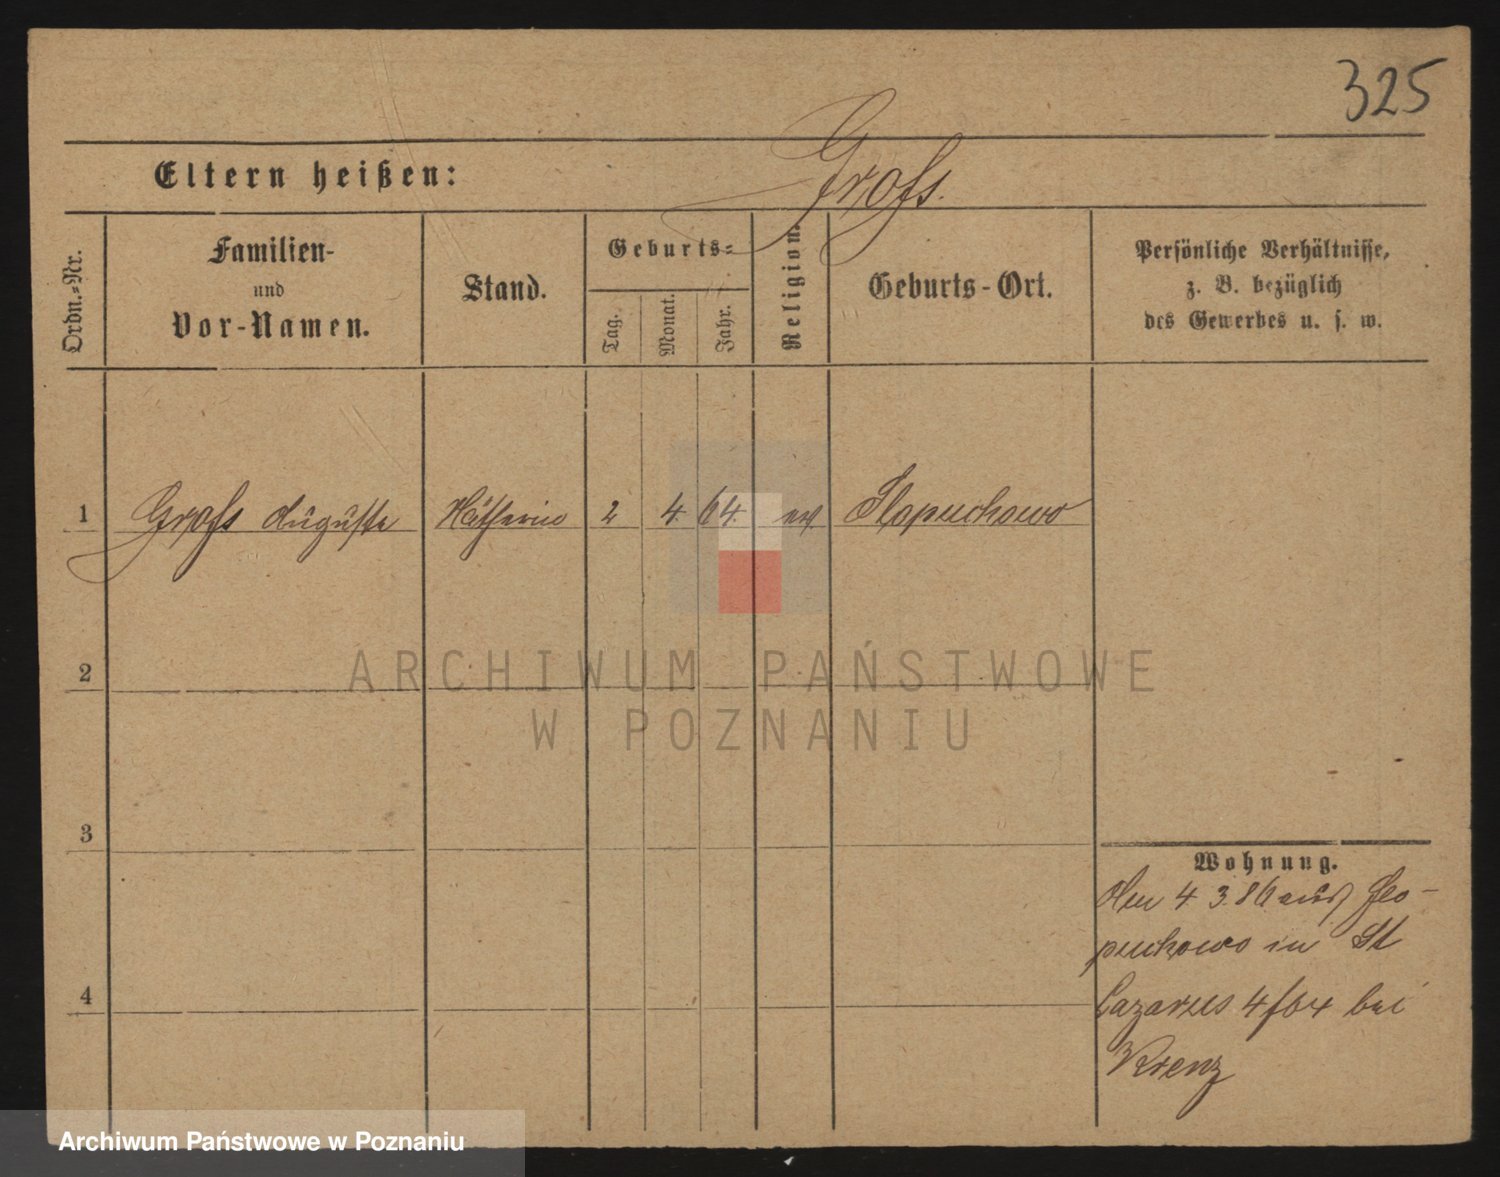 325
Eltern heißen: Groß.
Ordn.-Nr.
Familien-
und
Vor-Namen.
Stand.
Geburts-
Tag.
Monat.
Jahr.
Religion.
Geburts-Ort.
Persönliche Verhältnisse,
z. B. bezüglich
des Gewerbes u. s. w.
1 Groß Auguste 2 4 64. ev Slopuchowo
2
3
4
Wohnung.
Am 4 3. 86 aus Slo-
puchowo in St
Lazarus 4/64 bei
Krenz
ARCHIWUM PAŃSTWOWE
W POZNANIU
Archiwum Państwowe w Poznaniu